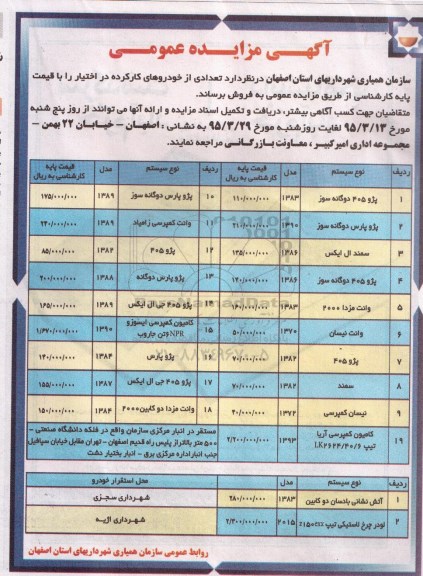 آگهی مزایده عمومی
سازمان همیاری شهرداریهای استان اصفهان درنظر دارد تعدادی از خودروهای کارکرده در اختیار را با قیمت
پایه کارشناسی از طریق مزایده عمومی به فروش برساند.
متقاضیان جهت کسب آگاهی بیشتر، دریافت و تکمیل اسناد مزایده و ارائه آنها می توانند از روز پنج شنبه
مورخ ۹۵/۳/۱۳ لغایت روزشنبه مورخ ۹۵/۳/۲۹ به نشانی : اصفهان - خیابان ۲۲ بهمن -
مجموعه اداری امیرکبیر ، معاونت بازرگانی مراجعه نمایند.
ردیف نوع سیستم مدل قیمت پایه کارشناسی به ریال ردیف نوع سیستم مدل قیمت پایه کارشناسی به ریال
۱ پژو ۴۰۵ دوگانه سوز ۱۳۸۳ ۱۱۰/۰۰۰/۰۰۰ ۱۰ پژو پارس دوگانه سوز ۱۳۸۹ ۱۷۵/۰۰۰/۰۰۰
۲ پژو پارس دوگانه سوز ۱۳۹۰ ۲۱۰/۰۰۰/۰۰۰ ۱۱ وانت کمپرسی زامیاد ۱۳۸۹ ۲۲۰/۰۰۰/۰۰۰
۳ سمند ال ایکس ۱۳۸۶ ۱۳۵/۰۰۰/۰۰۰ ۱۲ پژو ۴۰۵ ۱۳۸۲ ۸۵/۰۰۰/۰۰۰
۴ پژو ۴۰۵ دوگانه سوز ۱۳۸۶ ۱۲۰/۰۰۰/۰۰۰ ۱۳ پژو پارس دوگانه ۱۳۸۸ ۲۰۰/۰۰۰/۰۰۰
۵ وانت مزدا ۲۰۰۰ ۱۳۸۳ ۱۶۰/۰۰۰/۰۰۰ ۱۴ پژو ۴۰۵ جی ال ایکس ۱۳۸۹ ۱۶۵/۰۰۰/۰۰۰
۶ وانت نیسان ۱۳۷۰ ۵۰/۰۰۰/۰۰۰ ۱۵ کامیون کمپرسی ایسوزو NPR ۶تن جاروب ۱۳۹۰ ۱/۴۷۰/۰۰۰/۰۰۰
۷ پژو ۴۰۵ ۱۳۸۲ ۷۰/۰۰۰/۰۰۰ ۱۶ پژو پارس ۱۳۸۴ ۱۴۰/۰۰۰/۰۰۰
۸ سمند ۱۳۸۲ ۷۰/۰۰۰/۰۰۰ ۱۷ پژو ۴۰۵ جی ال ایکس ۱۳۸۷ ۱۵۵/۰۰۰/۰۰۰
۹ نیسان کمپرسی ۱۳۷۲ ۴۰/۰۰۰/۰۰۰ ۱۸ وانت مزدا دو کابین۲۰۰۰ ۱۳۸۴ ۱۵۰/۰۰۰/۰۰۰
۱۹ کامیون کمپرسی آریا تیپ LK۲۶۲۴/۴۰/۶ ۱۳۹۳ ۲/۲۰۰/۰۰۰/۰۰۰
مستقر در انبار مرکزی سازمان واقع در فلکه دانشگاه صنعتی -
۵۰۰ متر بالاتراز پلیس راه قدیم اصفهان - تهران مقابل خیابان سپاهیل
جنب انبار اداره مرکزی برق - انبار بختیار دشت
ردیف نوع سیستم مدل قیمت پایه کارشناسی به ریال محل استقرار خودرو
۱ آتش نشانی بادسان دو کابین ۱۳۸۳ ۲۸۰/۰۰۰/۰۰۰ شهرداری سجزی
۲ لودر چرخ لاستیکی تیپ ۲۰۱۵ ۲/۳۰۰/۰۰۰/۰۰۰ شهرداری اژیه
روابط عمومی سازمان همیاری شهرداریهای استان اصفهان